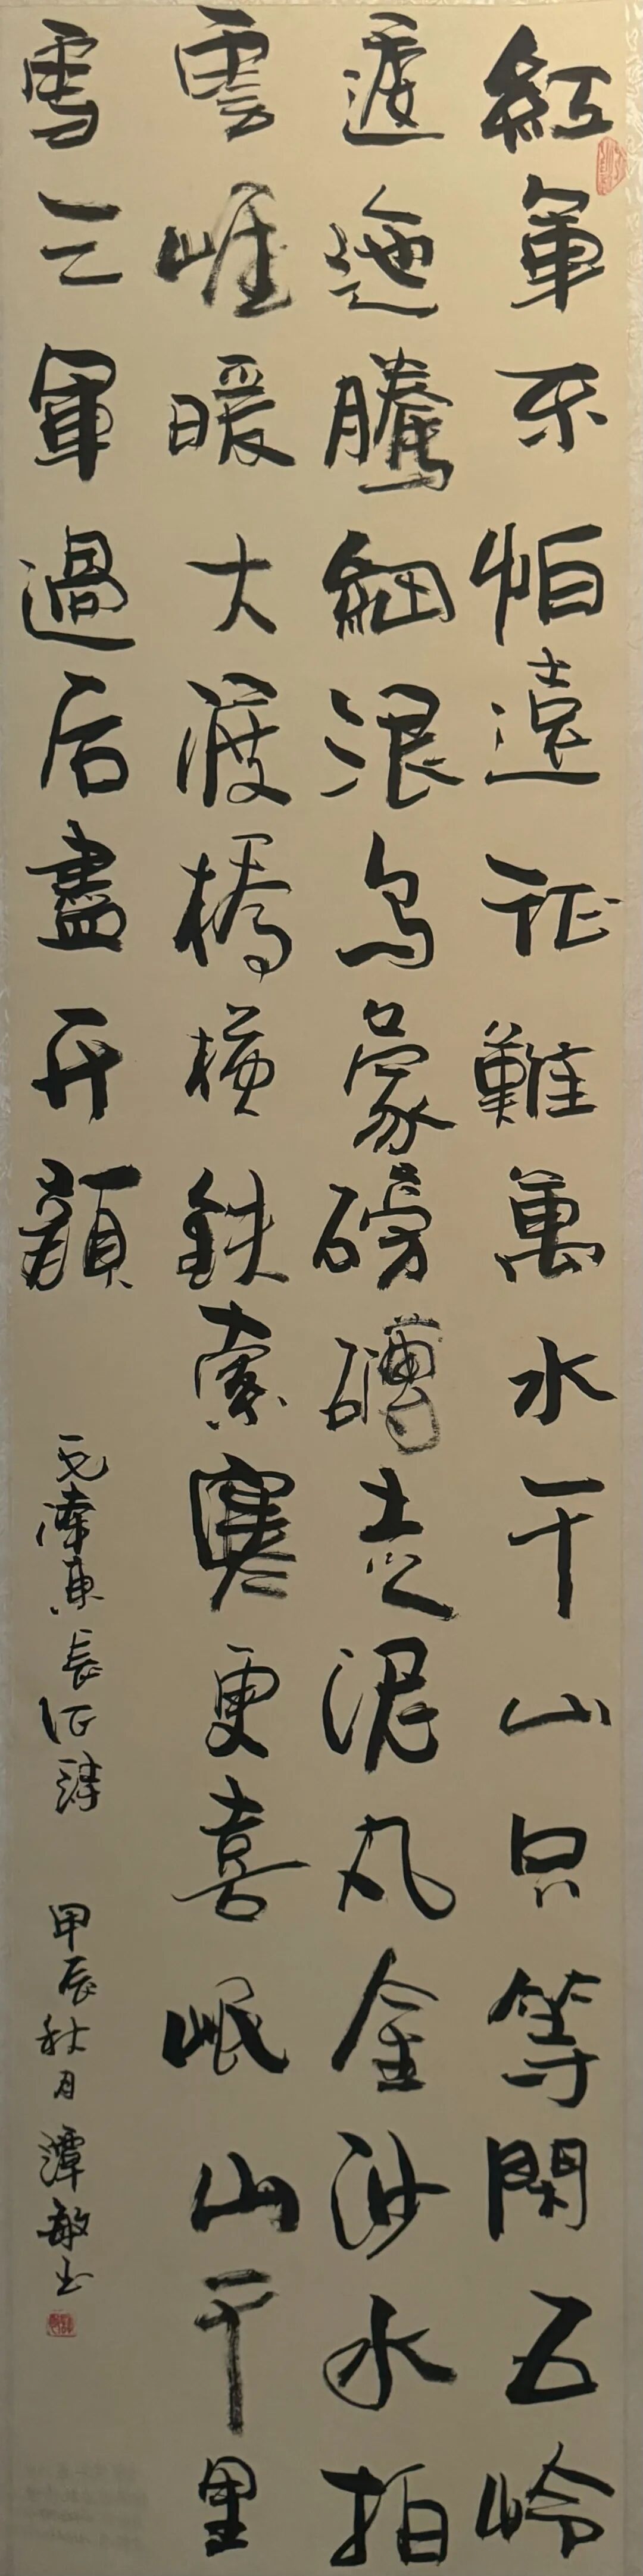 紅軍不怕遠征難萬水千山只等閑五岭
逶迤騰細浪烏蒙磅礴走泥丸金沙水拍
雲崖暖大渡橋橫鉄索寒更喜岷山千里
雪三軍過后盡开顏
毛澤東長征詩 甲辰秋月 譚敏书